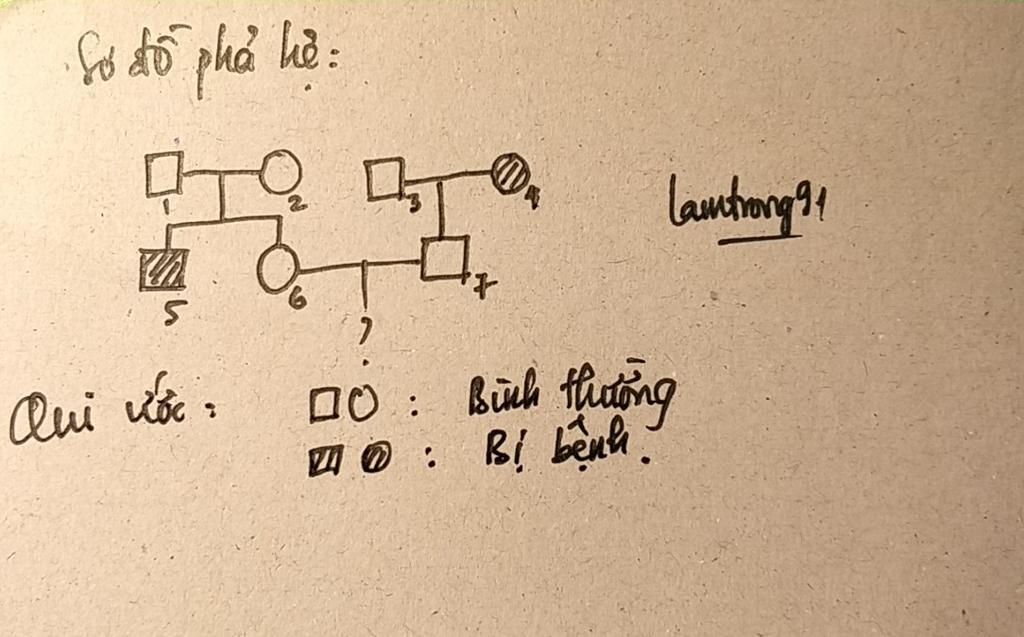 Sơ đồ phả hệ:
1 2 3 4
lamtrong91
5 6 7
?
Qui ước: : Bình thường
: Bị bệnh.